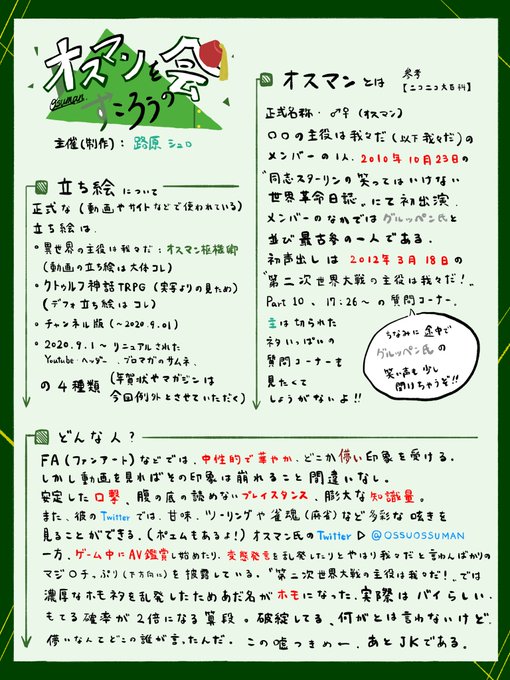 オスマンを
osuman.
すころうの会
主催(制作): 路原シュロ
立ち絵について
正式な(動画やサイトなどで使われている)
立ち絵は、
・異世界の主役は我々だ:オスマン枢機卿
(動画の立ち絵は大体コレ)
・クトゥルフ神話TRPG(実写よりの見ため)
(デフォ立ち絵はコレ)
・チャンネル版(~2020.9.01)
・2020.9.1~リニュアルされた
Youtube・ヘッダー、ブロマガのサムネ、
の4種類(年賀状やマガジンは
今回例外とさせていただく)
オスマンとは 参考
【ニコニコ大百科】
正式名称・♂♀(オスマン)
〇〇の主役は我々だ(以下我々だ)の
メンバーの1人。2010年10月23日の
"同志スターリンの笑ってはいけない
世界革命日誌"にて初出演。
メンバーのなかではグルッペン氏と
並び最古参の一人である。
初声出しは2012年3月18日の
"第二次世界大戦の主役は我々だ!"
Part10、17:26~の質問コーナー。
主は切られた
ネタいっぱいの
質問コーナーを
見たくて
しょうがないよ!!
ちなみに途中で
グルッペン氏の
笑い声も少し
聞けちゃうぞ!!
どんな人?
FA(ファンアート)などでは、中性的で華やか、どこか儚い印象を受ける。
しかし動画を見ればその印象は崩れること間違いなし。
安定した口撃、腹の底の読めないプレイスタンス、膨大な知識量。
また、彼のTwitterでは、甘味、ツーリングや雀魂(麻雀)など多彩な呟きを
見ることができる。(ポエムもあるよ!)オスマン氏のTwitter▷@OSSUOSSUMAN
一方、ゲーム中にAV鑑賞し始めたり、変態発言を乱発したりとやはり我々だと言わんばかりの
マジ〇チっぷり(下方向に)を披露している。"第二次世界大戦の主役は我々だ!"では
濃厚なホモネタを乱発したためあだ名がホモになった。実際はバイらしい。
もてる確率が2倍になる算段。破綻してる、何がとは言わないけど。
儚い人なんてどこの誰が言ったんだ。この嘘つきめー、あとJKである。